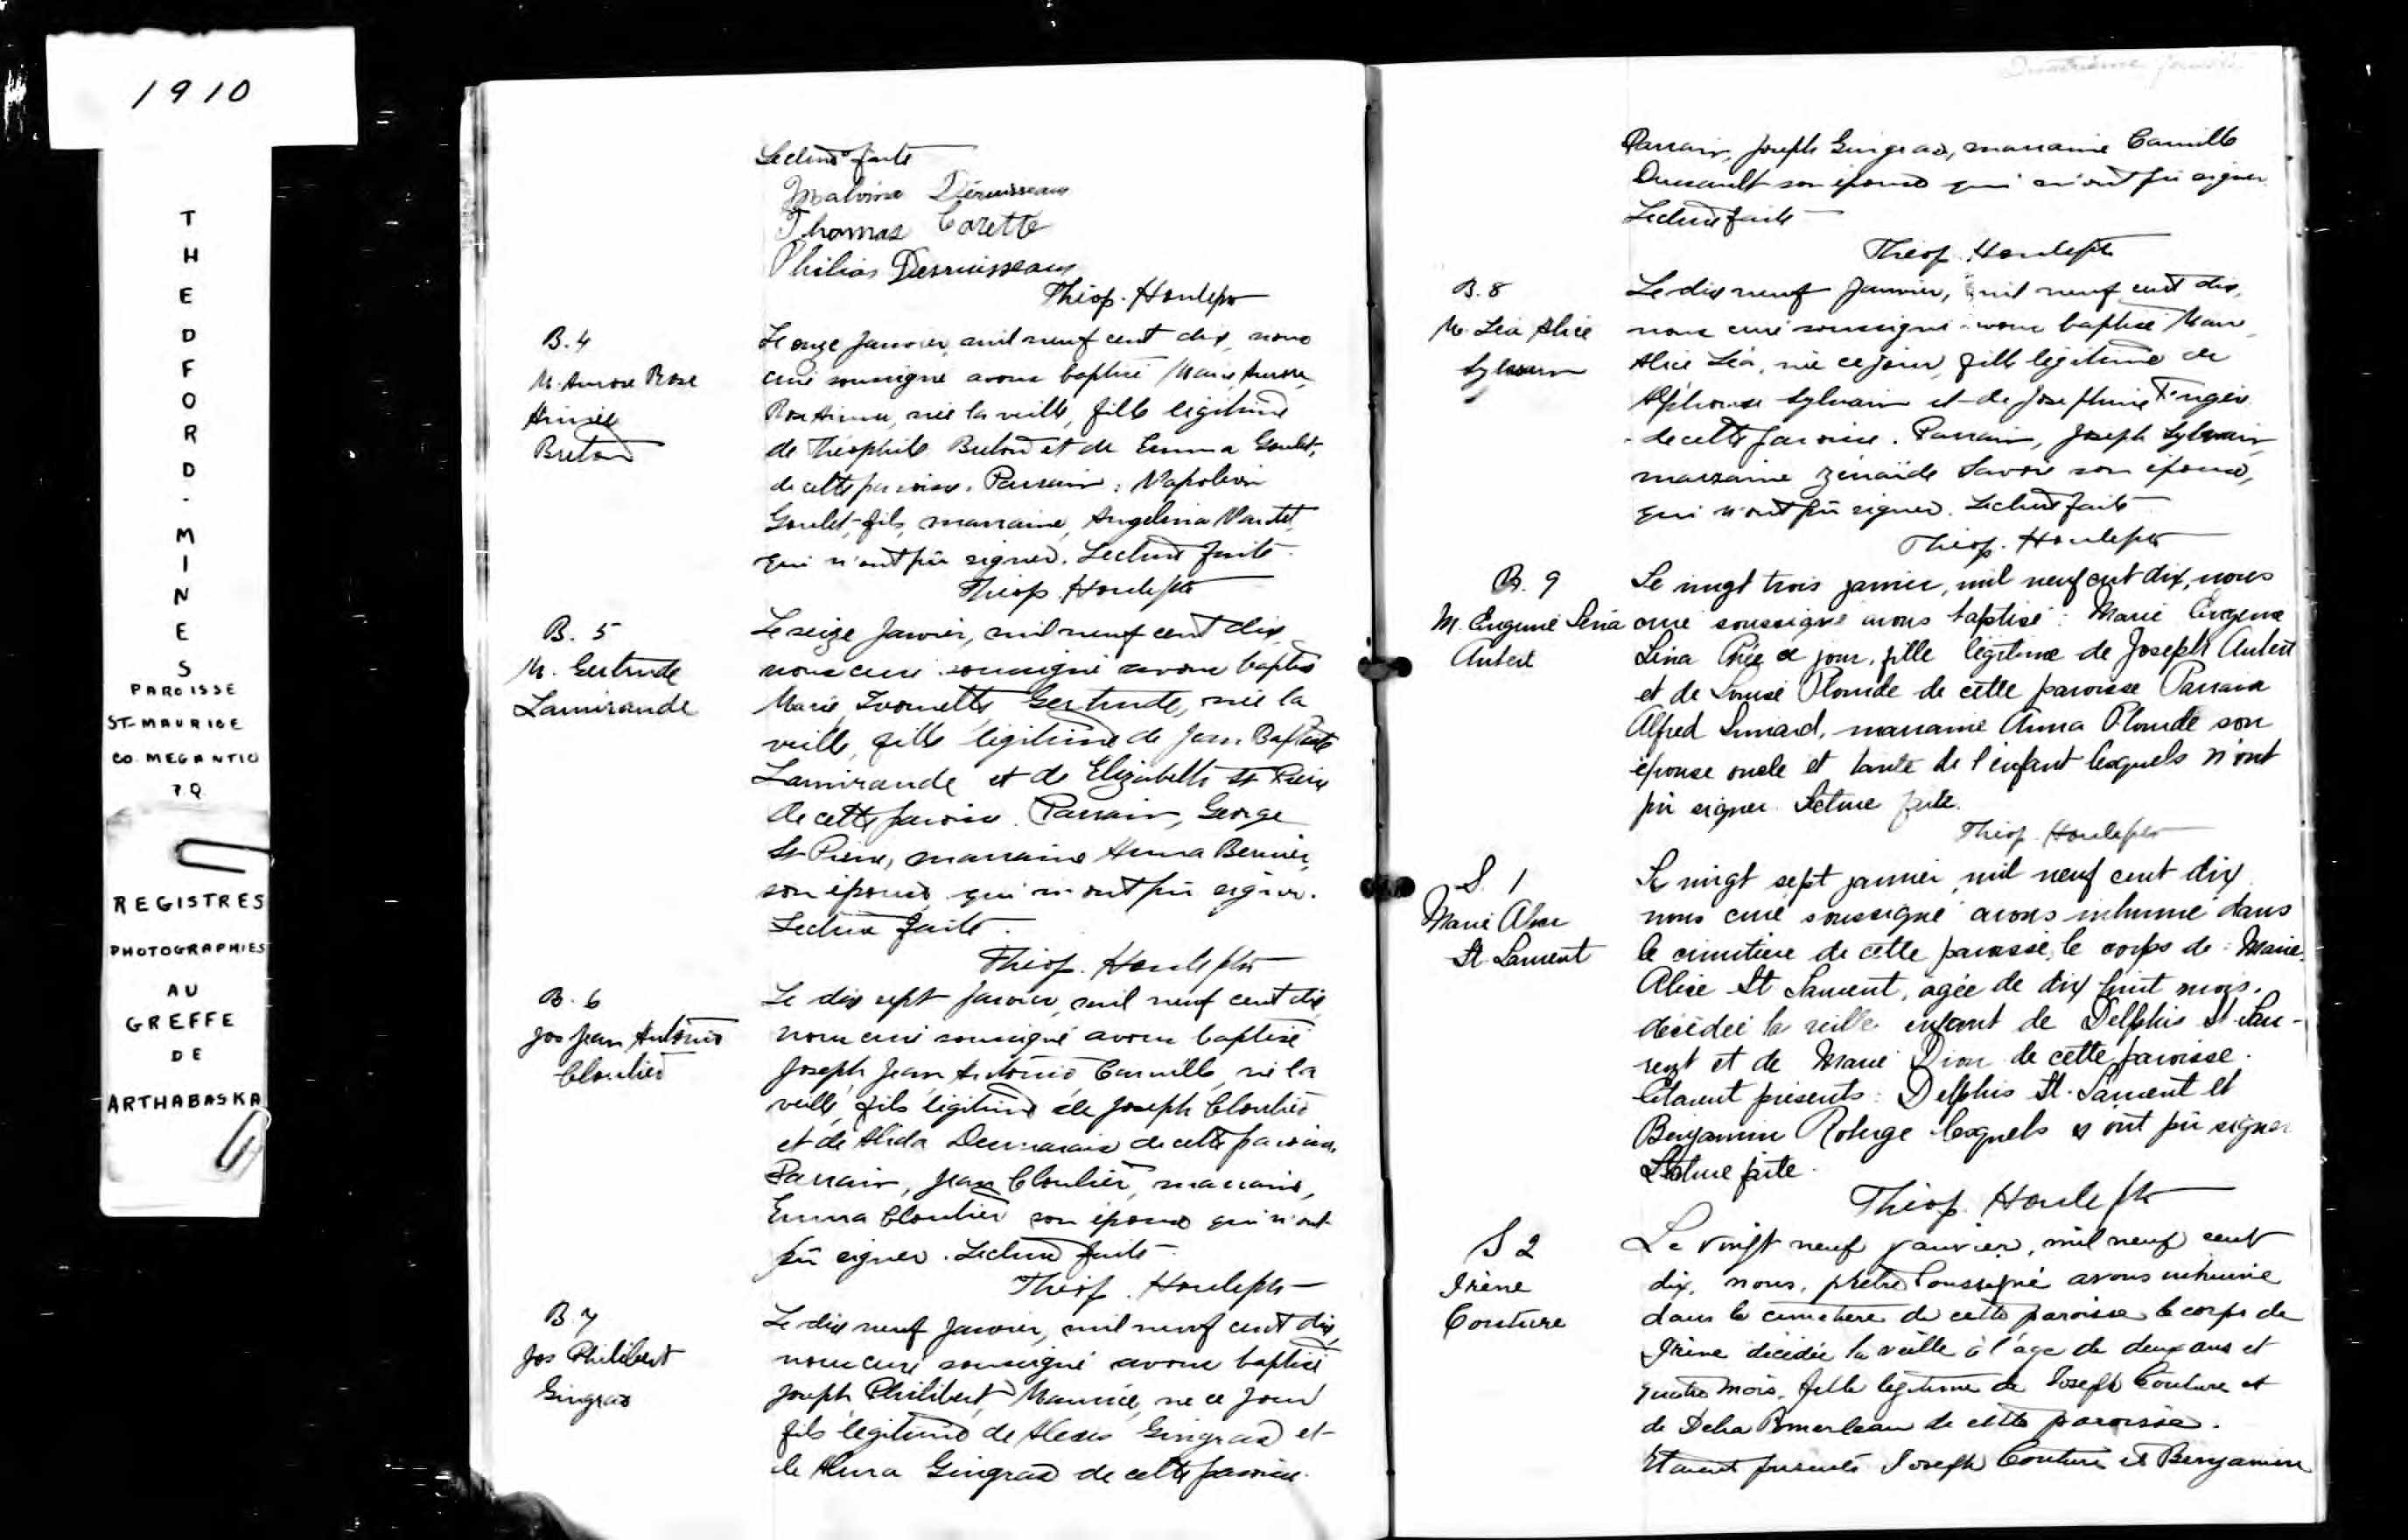 1910
THEDFORD-MINES
PAROISSE
ST-MAURICE
CO. MEGANTIC
P.Q
REGISTRES
PHOTOGRAPHIES
AU
GREFFE
DE
ARTHABASKA
Lecture faite
Malvina Déruisseau
Thomas Carette
Philias Desruisseaux
Théop. Houle ptre
B.4
M. Aurore Rose
Aimée
Breton
Le onze Janvier, mil neuf cent dix, nous
curé soussigné avons baptisé Marie Aurore,
Rose Aimée, née la veille, fille légitime
de Théophile Breton et de Emma Goulet,
de cette paroisse. Parrain: Napoléon
Goulet, fils, marraine, Angelina
qui n'ont pû signer. Lecture faite.
Théop. Houle ptre
B. 5
M. Gertrude
Lamirande
Le seize Janvier, mil neuf cent dix,
nous curé soussigné avons baptisé
Marie, Yvonette, Gertrude, née la
veille, fille légitime de Jean Baptiste
Lamirande et de Elizabeth St Pierre
de cette paroisse. Parrain, George
St Pierre, marraine Anna Bernier,
son épouse, qui n'ont pû signer.
Lecture faite.
Théop. Houle ptre
B. 6
Jos Jean Antonio
Cloutier
Le dix sept Janvier, mil neuf cent dix,
nous curé soussigné avons baptisé
Joseph, Jean, Antonio, Camille, né la
veille, fils légitime de Joseph Cloutier
et de Alida Desmarais de cette paroisse.
Parrain, Jean Cloutier, marraine,
Emma Cloutier son épouse qui n'ont
pû signer. Lecture faite.
Théop. Houle ptre
B.7
Jos Philibert
Gingras
Le dix neuf Janvier, mil neuf cent dix,
nous curé soussigné avons baptisé
Joseph, Philibert, Maurice, né ce jour
fils légitime de Alexis Gingras et
de Gingras de cette paroisse.
Parrain, Joseph Gingras, marraine Camille
Dussault son épouse qui n'ont pû signer
Lecture faite
Théop. Houle ptre
B. 8
M. Léa Alice
Sylvain
Le dix neuf Janvier, mil neuf cent dix,
nous curé soussigné avons baptisé Marie
Alice Léa, née ce jour, fille légitime de
Alphonse Sylvain et de Josephine
de cette paroisse. Parrain, Joseph Sylvain,
marraine Zénaïde Savoie son épouse,
qui n'ont pû signer. Lecture faite
Théop. Houle ptre
B. 9
M. Eugenie Lina
Aubert
Le vingt trois janvier, mil neuf cent dix, nous
curé soussigné avons baptisé: Marie Eugenie
Lina née ce jour, fille légitime de Joseph Aubert
et de Louise Plourde de cette paroisse Parrain
Alfred Simard, marraine Anna Plourde son
épouse oncle et tante de l'enfant lesquels n'ont
pû signer. Lecture faite.
Théop. Houle ptre
S. 1
Marie Alice
St. Laurent
Le vingt sept janvier, mil neuf cent dix
nous curé soussigné avons inhumé dans
le cimetière de cette paroisse, le corps de: Marie
Alice St Laurent, agée de dix huit mois,
décédée la veille enfant de Delphis St. Lau-
rent et de Marie Dion de cette paroisse.
Etaient présents: Delphis St. Laurent et
Benjamin Roberge lesquels n'ont pû signer
Lecture faite.
Théop. Houle ptre
S 2
Irène
Couture
Le vingt neuf janvier, mil neuf cent
dix, nous, prêtre soussigné avons inhumé
dans le cimetière de cette paroisse le corps de
Irène décédée la veille à l'age de deux ans et
quatre mois, fille légitime de Joseph Couture et
de Delia Pomerleau de cette paroisse.
Etaient présents Joseph Couture et Benjamin